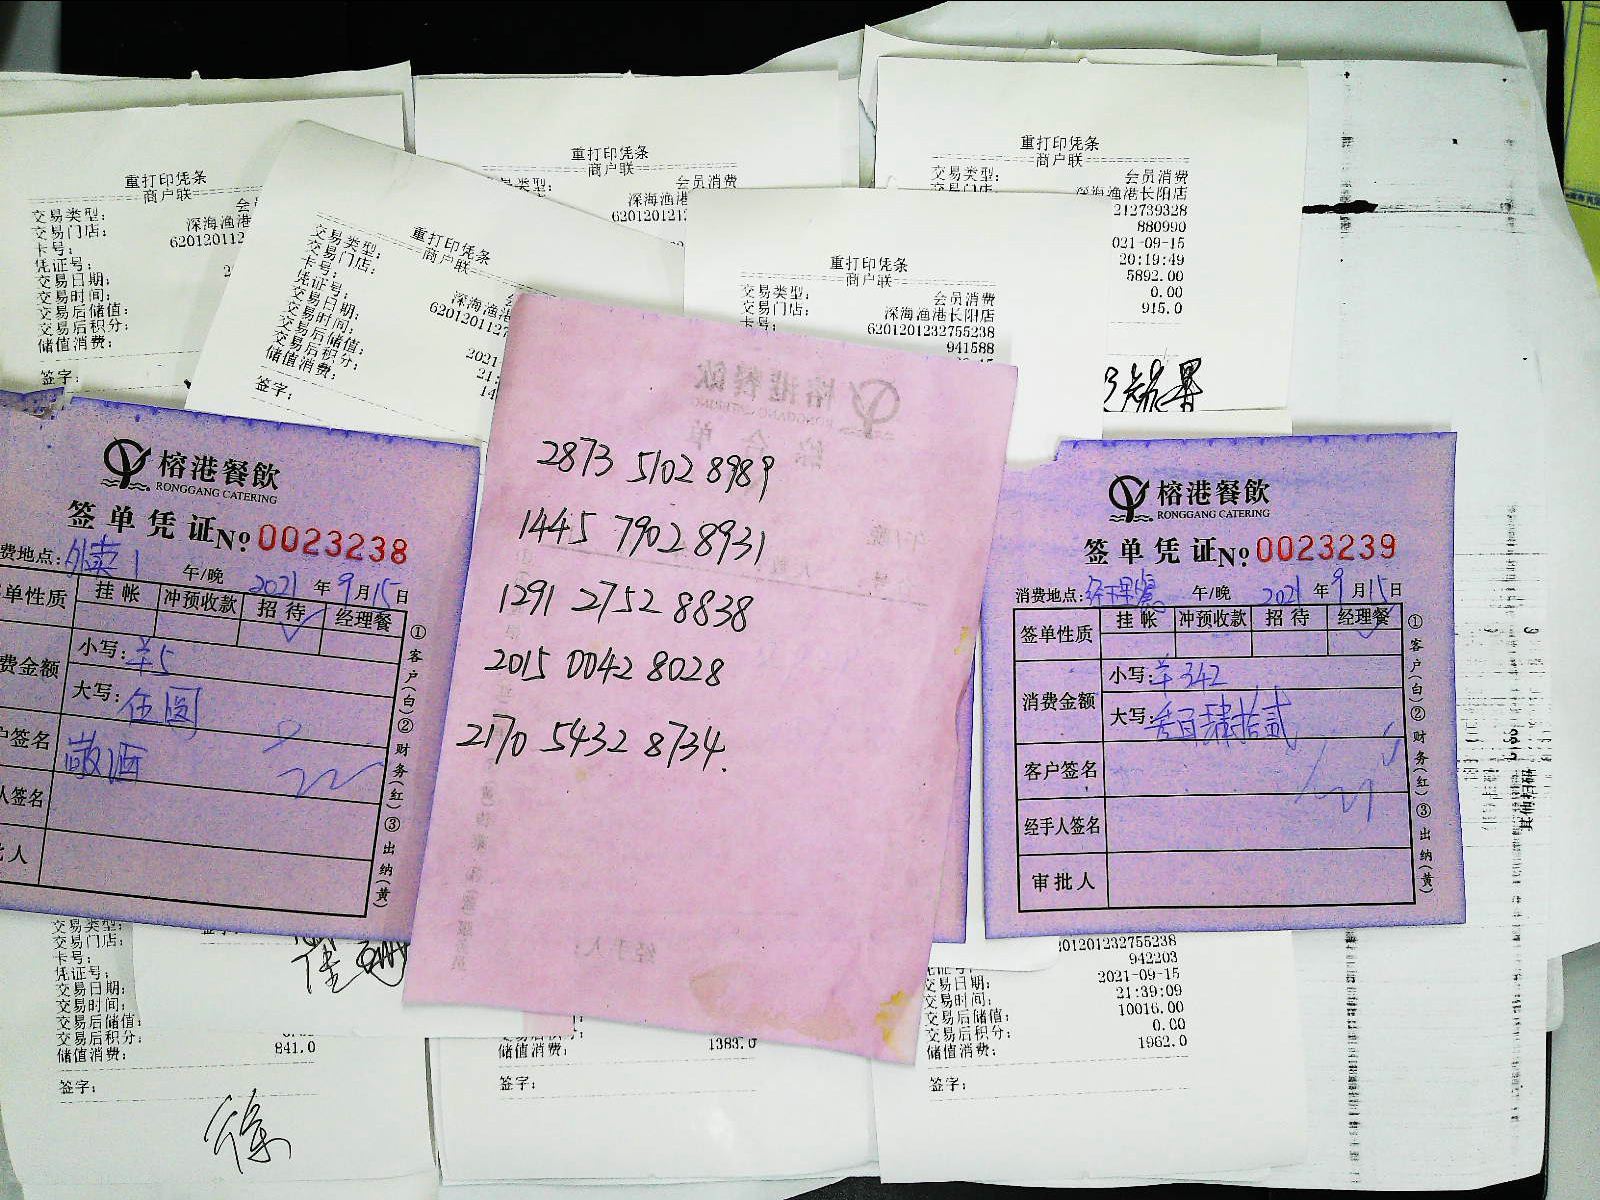 重打印凭条
商户联
交易类型:
交易门店: 深海渔港
卡号: 620120112
凭证号:
交易日期:
交易时间:
交易后储值:
交易后积分:
储值消费:
签字:
重打印凭条
商户联
交易类型:
交易门店: 深海渔港
卡号: 6201201127
凭证号:
交易日期: 2021
交易时间: 21:
交易后储值: 14
交易后积分:
储值消费:
签字:
重打印凭条
商户联
交易类型: 会员消费
深海渔港
620120121
重打印凭条
商户联
交易类型: 会员消费
交易门店: 深海渔港长阳店
卡号: 6201201232755238
941588
重打印凭条
商户联
交易类型: 会员消费
交易门店: 深海渔港长阳店
212739328
880990
021-09-15
20:19:49
5892.00
0.00
915.0
榕港餐飲
RONGGANG CATERING
签单凭证 No. 0023238
费地点: 外卖1 午/晚 2021 年 9 月 15 日
单性质 挂帐 冲预收款 招待 经理餐
费金额 小写: ¥5
大写: 伍圆
户签名 敬酒
人签名
批人
①客户(白)②财务(红)③出纳(黄)
榕港餐飲
RONGGANG CATERING
2873 5102 8989
1445 7902 8931
1291 2752 8838
2015 0042 8028
2170 5432 8734.
经手人:
榕港餐飲
RONGGANG CATERING
签单凭证 No. 0023239
消费地点: 午/晚 2021 年 9 月 15 日
签单性质 挂帐 冲预收款 招待 经理餐
消费金额 小写: ¥342
大写: 叁百肆拾贰
客户签名
经手人签名
审批人
①客户(白)②财务(红)③出纳(黄)
交易类型:
交易门店:
卡号:
凭证号:
交易日期:
交易时间:
交易后储值:
交易后积分:
储值消费: 841.0
签字:
徐
交易后积分:
储值消费: 1383.0
签字:
01201232755238
凭证号: 942203
交易日期: 2021-09-15
交易时间: 21:39:09
交易后储值: 10016.00
交易后积分: 0.00
储值消费: 1962.0
签字: